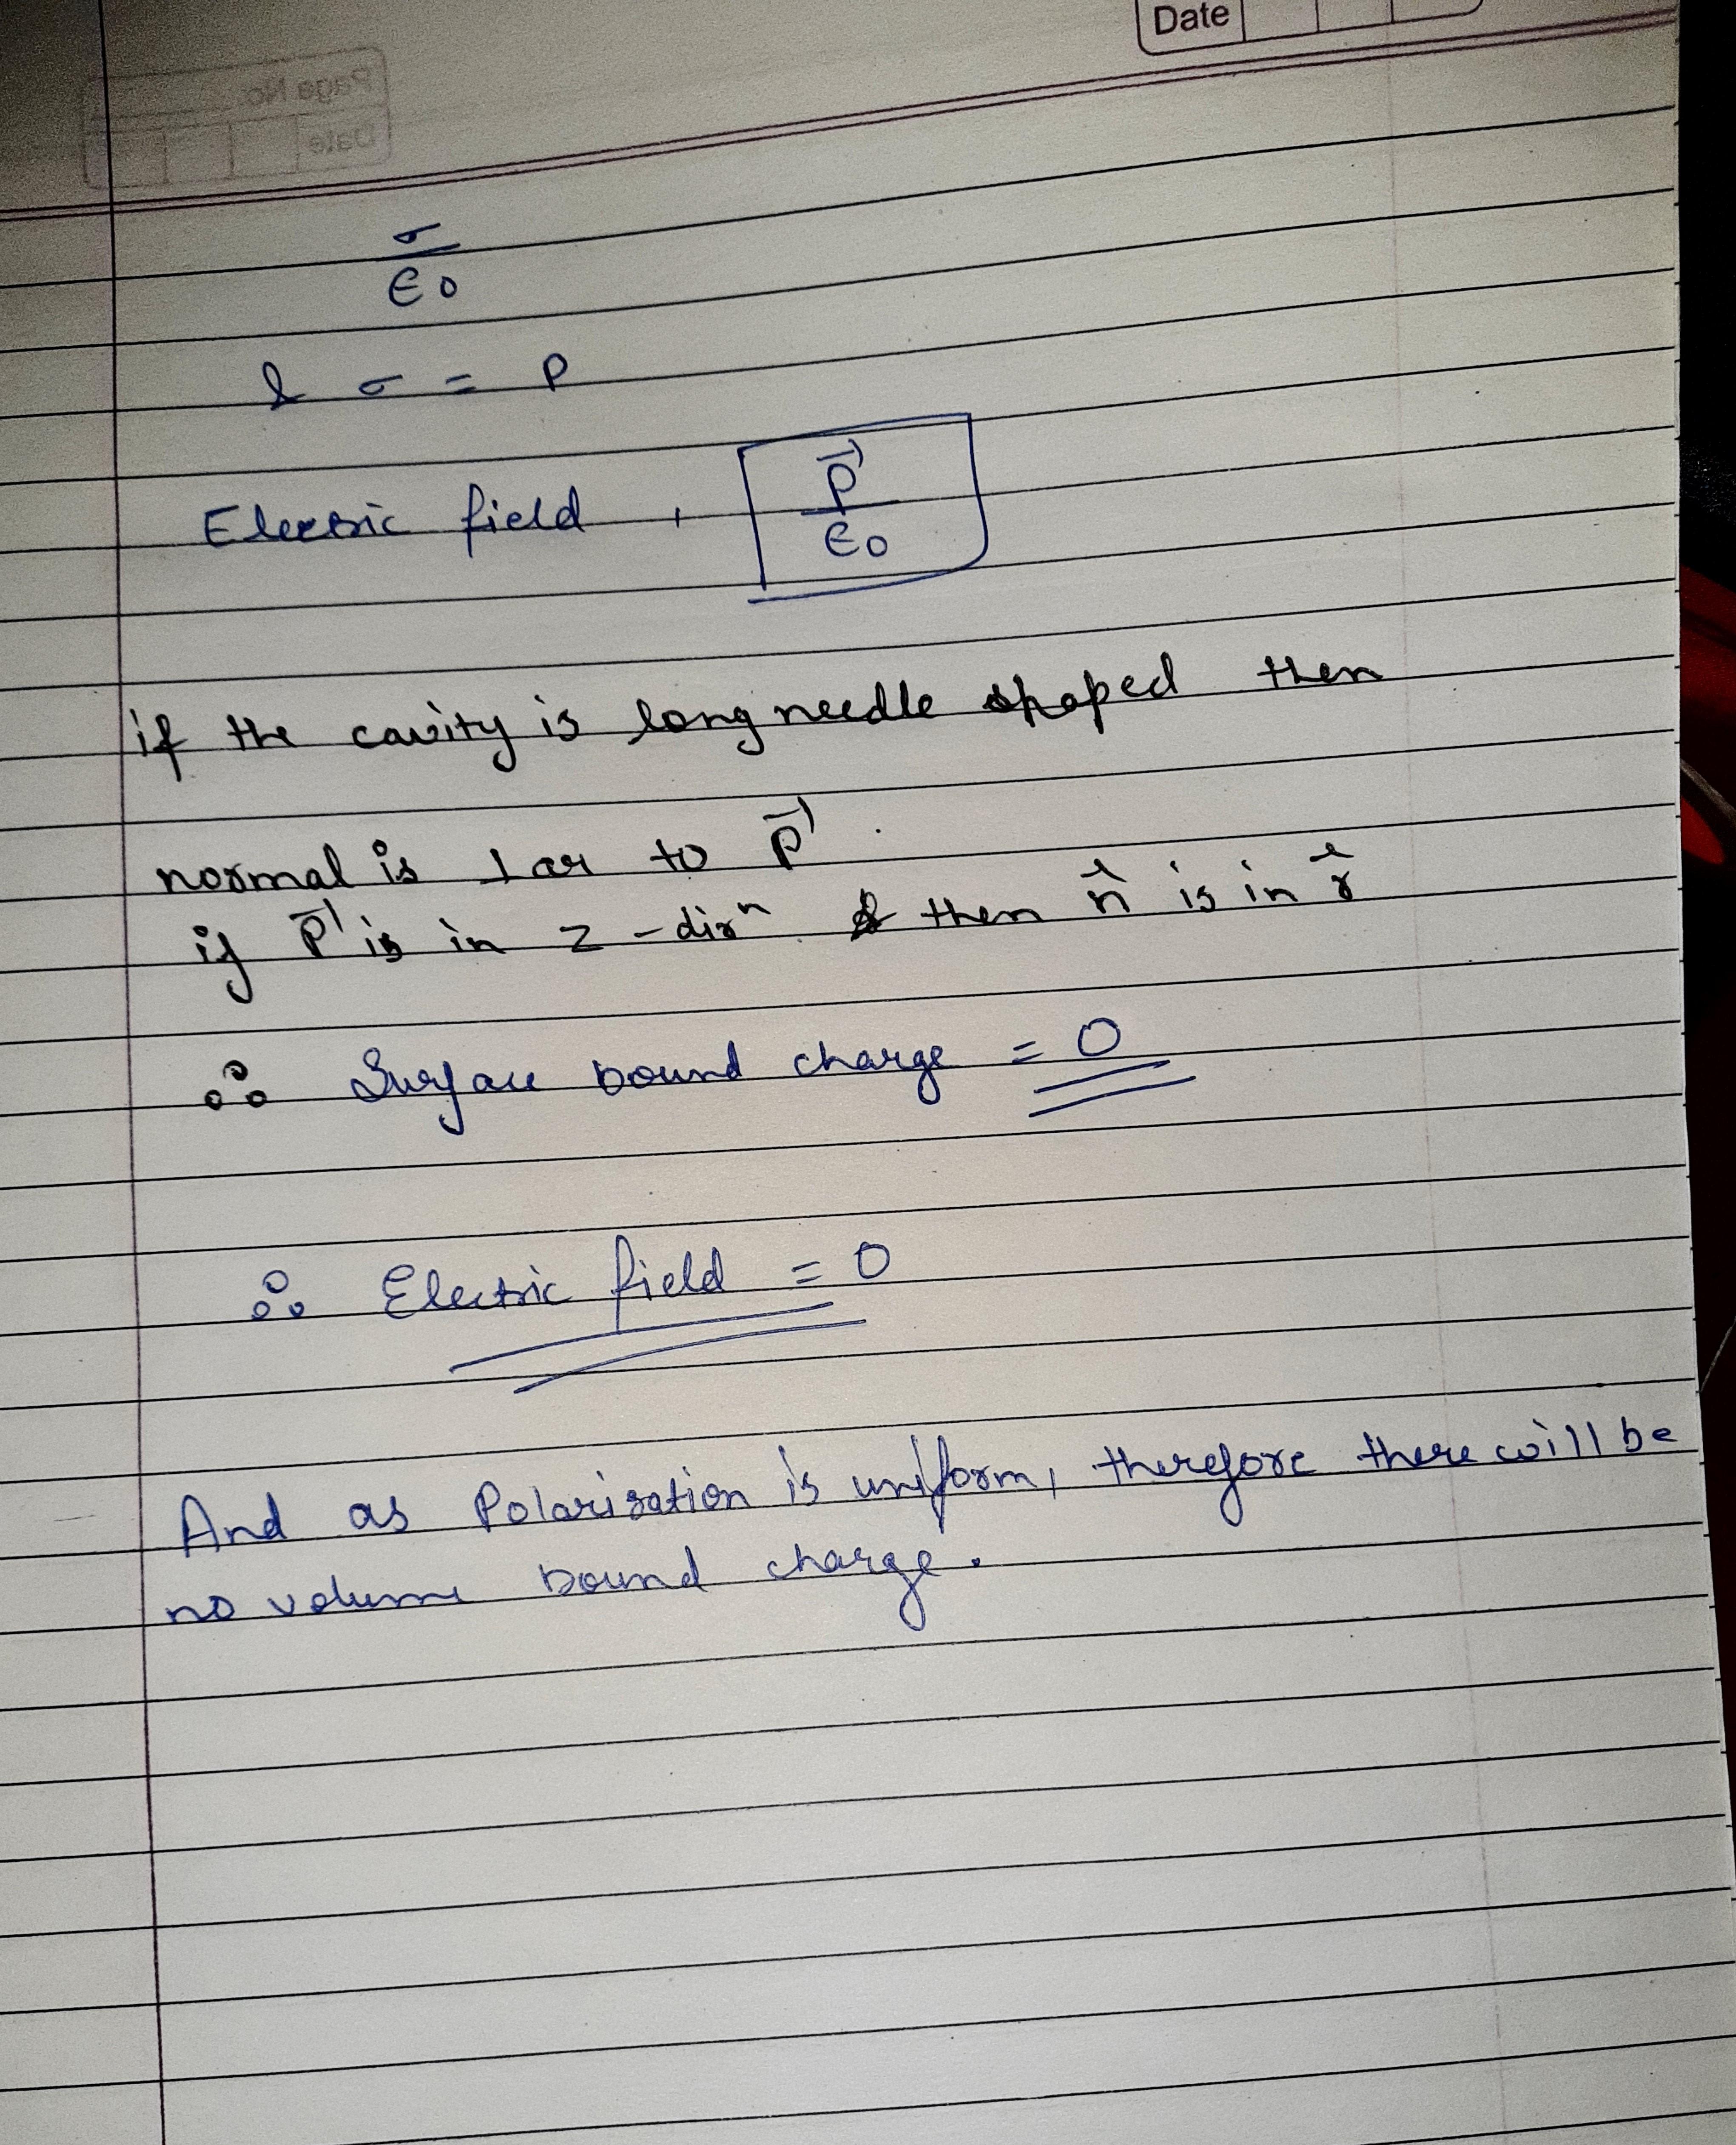 Date
Page No.
Date
σ
ϵ0
& σ = P
Electric field , P⃗
ϵ0
if the cavity is long needle shaped then
normal is ⊥ar to P⃗ .
if P⃗ is in z - dirⁿ. then n̂ is in r̂
∴ Surface bound charge = 0
∴ Electric field = 0
And as Polarization is uniform, therefore there will be
no volume bound charge.